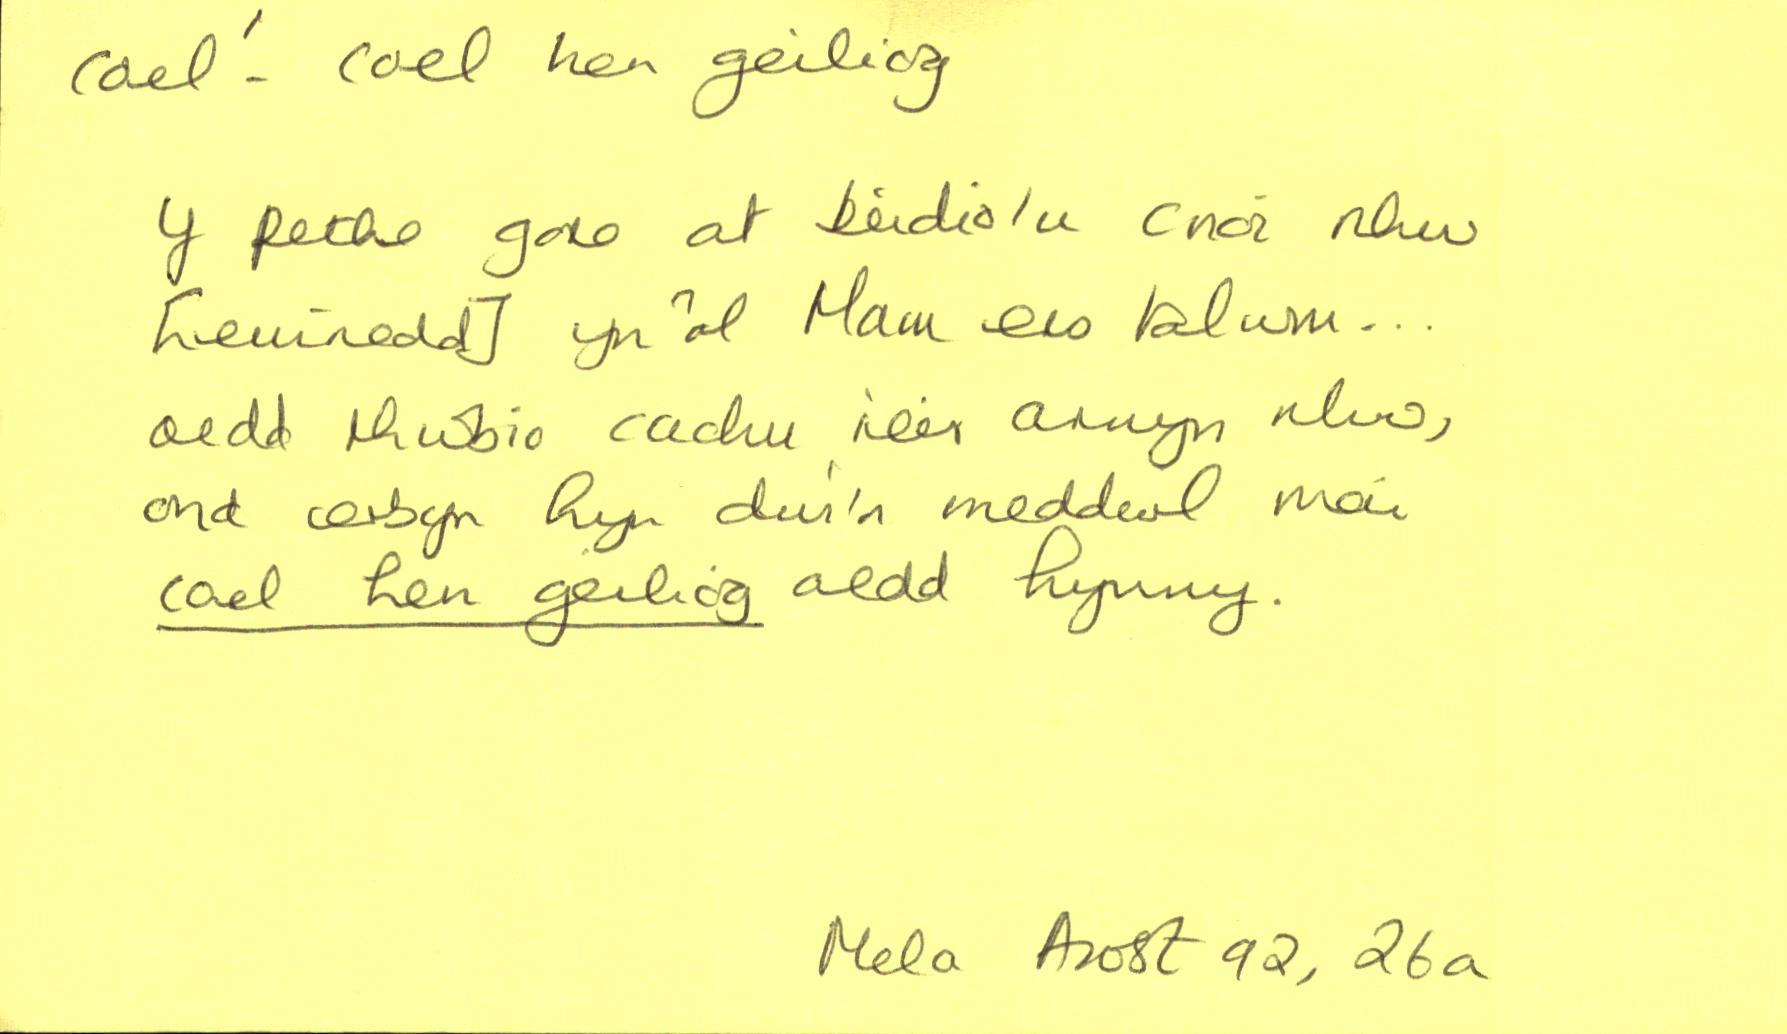 cael¹ - coel hen geiliog
Y pethe gore at beidio'u cnoi nhw
[ewinedd] yn ôl Mam ers talwm...
oedd rhwbio cachu ieir arnyn nhw,
ond erbyn hyn dwi'n meddwl mai
coel hen geiliog oedd hynny.
Mela Awst 92, 26a